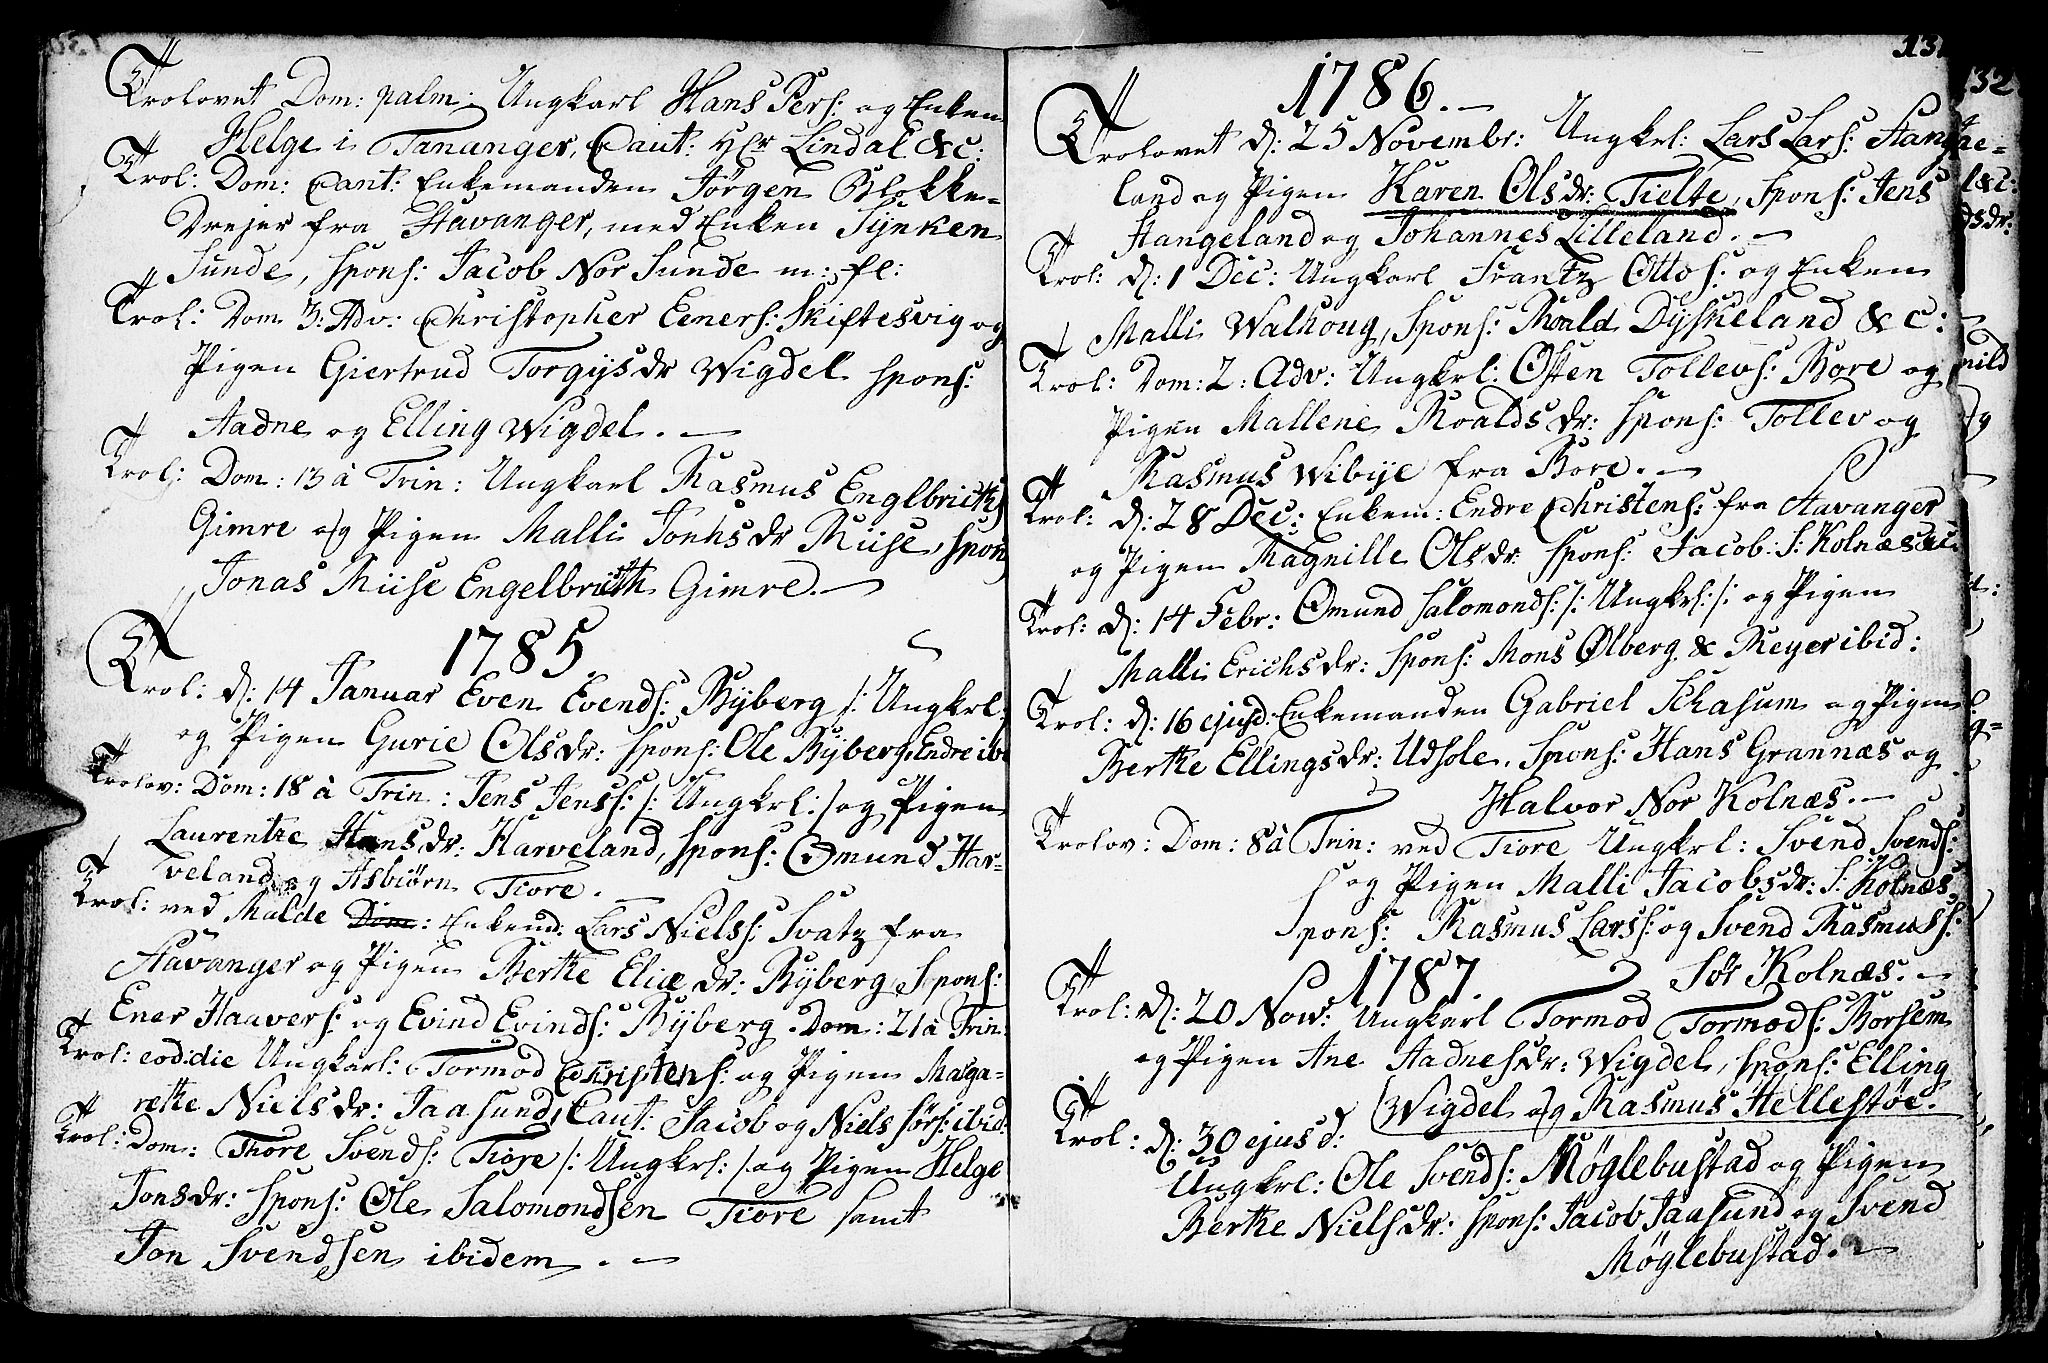 Trolovet Dom: palm: Ungkarl Hans Pers: og Enken
Helge i Tananger, Caut: Hr Lindal &c:
Trol: Dom: Cant: Enkemanden Jørgen Blokke-
Drejer fra Stavanger, med Enken Synken
Sunde, Spons: Jacob Nor Sunde m: fl:
Trol: Dom 3: Adv: Christopher Eeners: Skiftesvig og
Pigen Giertrud Torgijsdr Wigdel spons:
Aadne og Elling Wigdel. —
Trol: Dom: 13 à Trin: Ungkarl Rasmus Englbricths
Gimre og Pigen Malli Jonhsdr Miise, spons
Jonas Miise Engelbricth Gimre. —
1785.
Trol: d: 14 Januar Even Evends: Byberg /: Ungkrl:
og Pigen Gurie Olsdr: spons: Ole Byberg, Endre ibi
Trolov: Dom: 18 à Trin: Jens Jenss: /: Ungkrl: / og Pigen
Laurentze Hansdr: Harveland, spons: Omund Har-
veland og Asbiørn Tiore. —
Trol: ved Malde Dom: Enkemd: Lars Nielss: Svatz fra
Stavanger og Pigen Berthe Eliæ dr: Byberg, Spons:
Ener Haavers: og Evind Evinds: Byberg. Dom: 21 à Trin:
Trol: eod: die Ungkarl: Tormod Christens: og Pigen Marga-
rethe Nielsdr: Jaasund, Caut: Jacob og Niels Sørs: ibid:
Trol: Dom: Thore Svends: Tiore /: Ungkrl: / og Pigen Helge
Jonsdr: spons: Ole Salomondsen Tiore samt
Jon Svendsen ibidem. —
131
1786. —
Trolovet d: 25 Novembr: Ungkrl: Lars Lars: Stange-
land og Pigen Karen Olsdr: Tielte, Spons: Jens
Stangeland og Johannes Lilleland. —
Trol: d: 1 Dec: Ungkarl Frantz Ottos: og Enken
Malli Walhoug, Spons: Roald Dyskeland & c: —
Trol: Dom: 2: Adv: Ungkrl: Osten Tollevs: Bore og
Pigen Mallene Roaldsdr: spons: Tollev og
Rasmus Wibye fra Bore. —
Trol: d: 28 Dec: Enkem: Endre Christens: fra Stavanger
og Pigen Magnille Olsdr: spons: Jacob S: Kolnæs &c:
Trol: d: 14 Febr: Omund Salomonds: /: Ungkrl: /: og Pigen
Malli Erichsdr: spons: Mons Ølberg & Reyer ibid:
Trol: d: 16 ejusd: Enkemanden Gabriel Schasum og Pigen
Berthe Ellingsdr: Udsole, Spons: Hans Grannæs og
Halvor Nor Kolnæs. —
Trolov: Dom: 8 à Trin: ved Tiore Ungkrl: Svend Svends:
og Pigen Malli Jacobsdr: S: Kolnæs.
Spons: Rasmus Larss: og Svend Rasmuss:
Sør Kolnæs. —
1787
Trol: d: 20 Nov: Ungkarl Tormod Tormods: Borsem
og Pigen Ane Aadnesdr: Wigdel, spons: Elling
Wigdel og Rasmus Hellestøe.
Trol: d: 30 ejusd:
Ungkrl: Ole Svends: Møglebustad og Pigen
Berthe Nielsdr: spons: Jacob Jaasund og Svend
Møglebustad. —
132